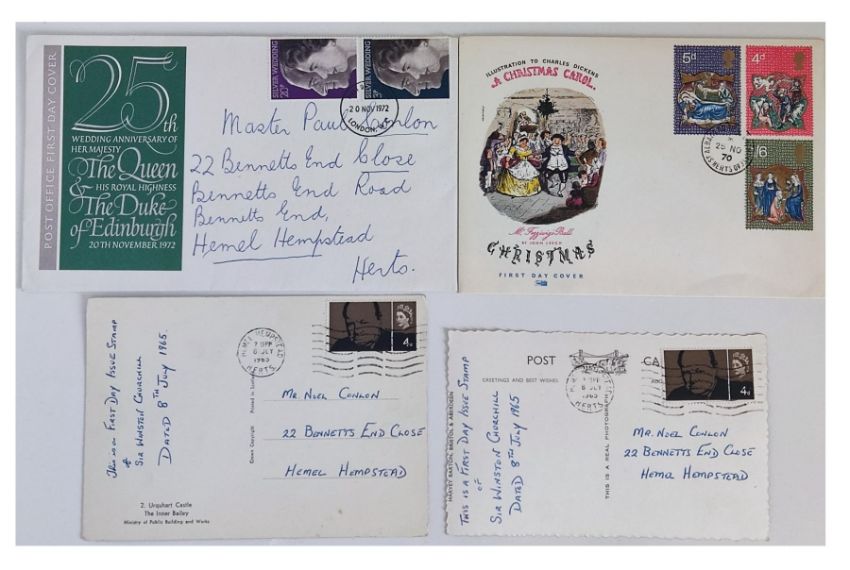 POST OFFICE FIRST DAY COVER
25th
WEDDING ANNIVERSARY OF
HER MAJESTY
The Queen
& HIS ROYAL HIGHNESS
The Duke
of Edinburgh
20TH NOVEMBER 1972
SILVER WEDDING
SILVER WEDDING
20 NOV 1972
LONDON
Master Paul Conlon
22 Bennetts End Close
Bennetts End Road
Bennetts End,
Hemel Hempstead
Herts.
ILLUSTRATION TO CHARLES DICKENS'
A CHRISTMAS CAROL
Mr. Fezziwig's Ball
BY JOHN LEECH
CHRISTMAS
FIRST DAY COVER
5d
4d
1/6
25 NO
70
This is a First Day Issue Stamp
of
Sir Winston Churchill
Dated 8th July 1965.
HEMEL HEMPSTEAD
8 JLY
1965
HERTS.
4d
Printed in Scotland
Crown Copyright
Mr. Noel Conlon
22 Bennetts End Close
Hemel Hempstead
2. Urquhart Castle
The Inner Bailey
Ministry of Public Building and Works
POST CA
GREETINGS AND BEST WISHES
HARVEY BARTON, BRISTOL & ABERDEEN
This is a First Day Issue Stamp
of
Sir Winston Churchill
Dated 8th July 1965
THIS IS A REAL PHOTOGRAPH
8 JLY
1965
HERTS
4d
Mr. Noel Conlon
22 Bennetts End Close
Hemel Hempstead